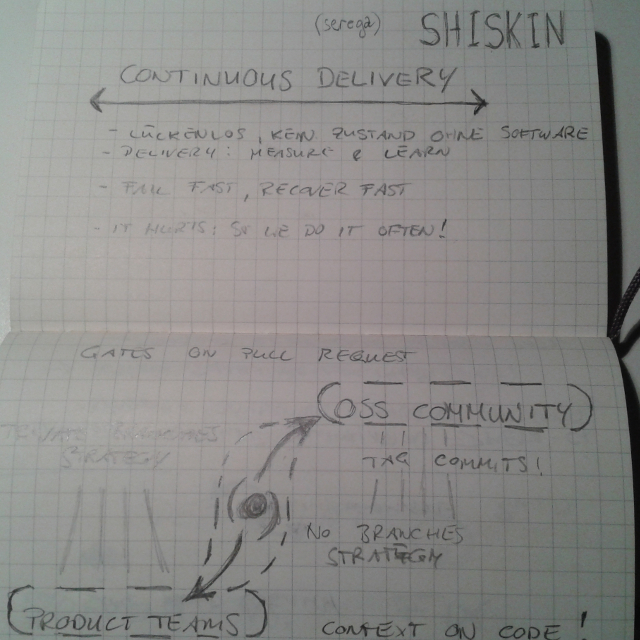 (seroga) SHISKIN
CONTINUOUS DELIVERY
- LÜCKENLOS, KEIN ZUSTAND OHNE SOFTWARE
- DELIVERY: MEASURE & LEARN
- FAIL FAST, RECOVER FAST
- IT HURTS! SO WE DO IT OFTEN!
GATES ON PULL REQUEST
(OSS COMMUNITY)
BRANCHES
STRATEGY
TAG COMMITS!
NO BRANCHES
STRATEGY
(PRODUCT TEAMS)
CONTEXT ON CODE!